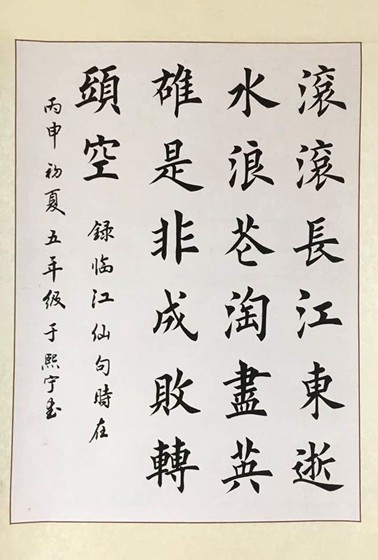 滚滚長江東逝
水浪苍淘盡英
雄是非成敗轉
頭空
録临江仙句時在
丙申初夏五年级于熙宁书